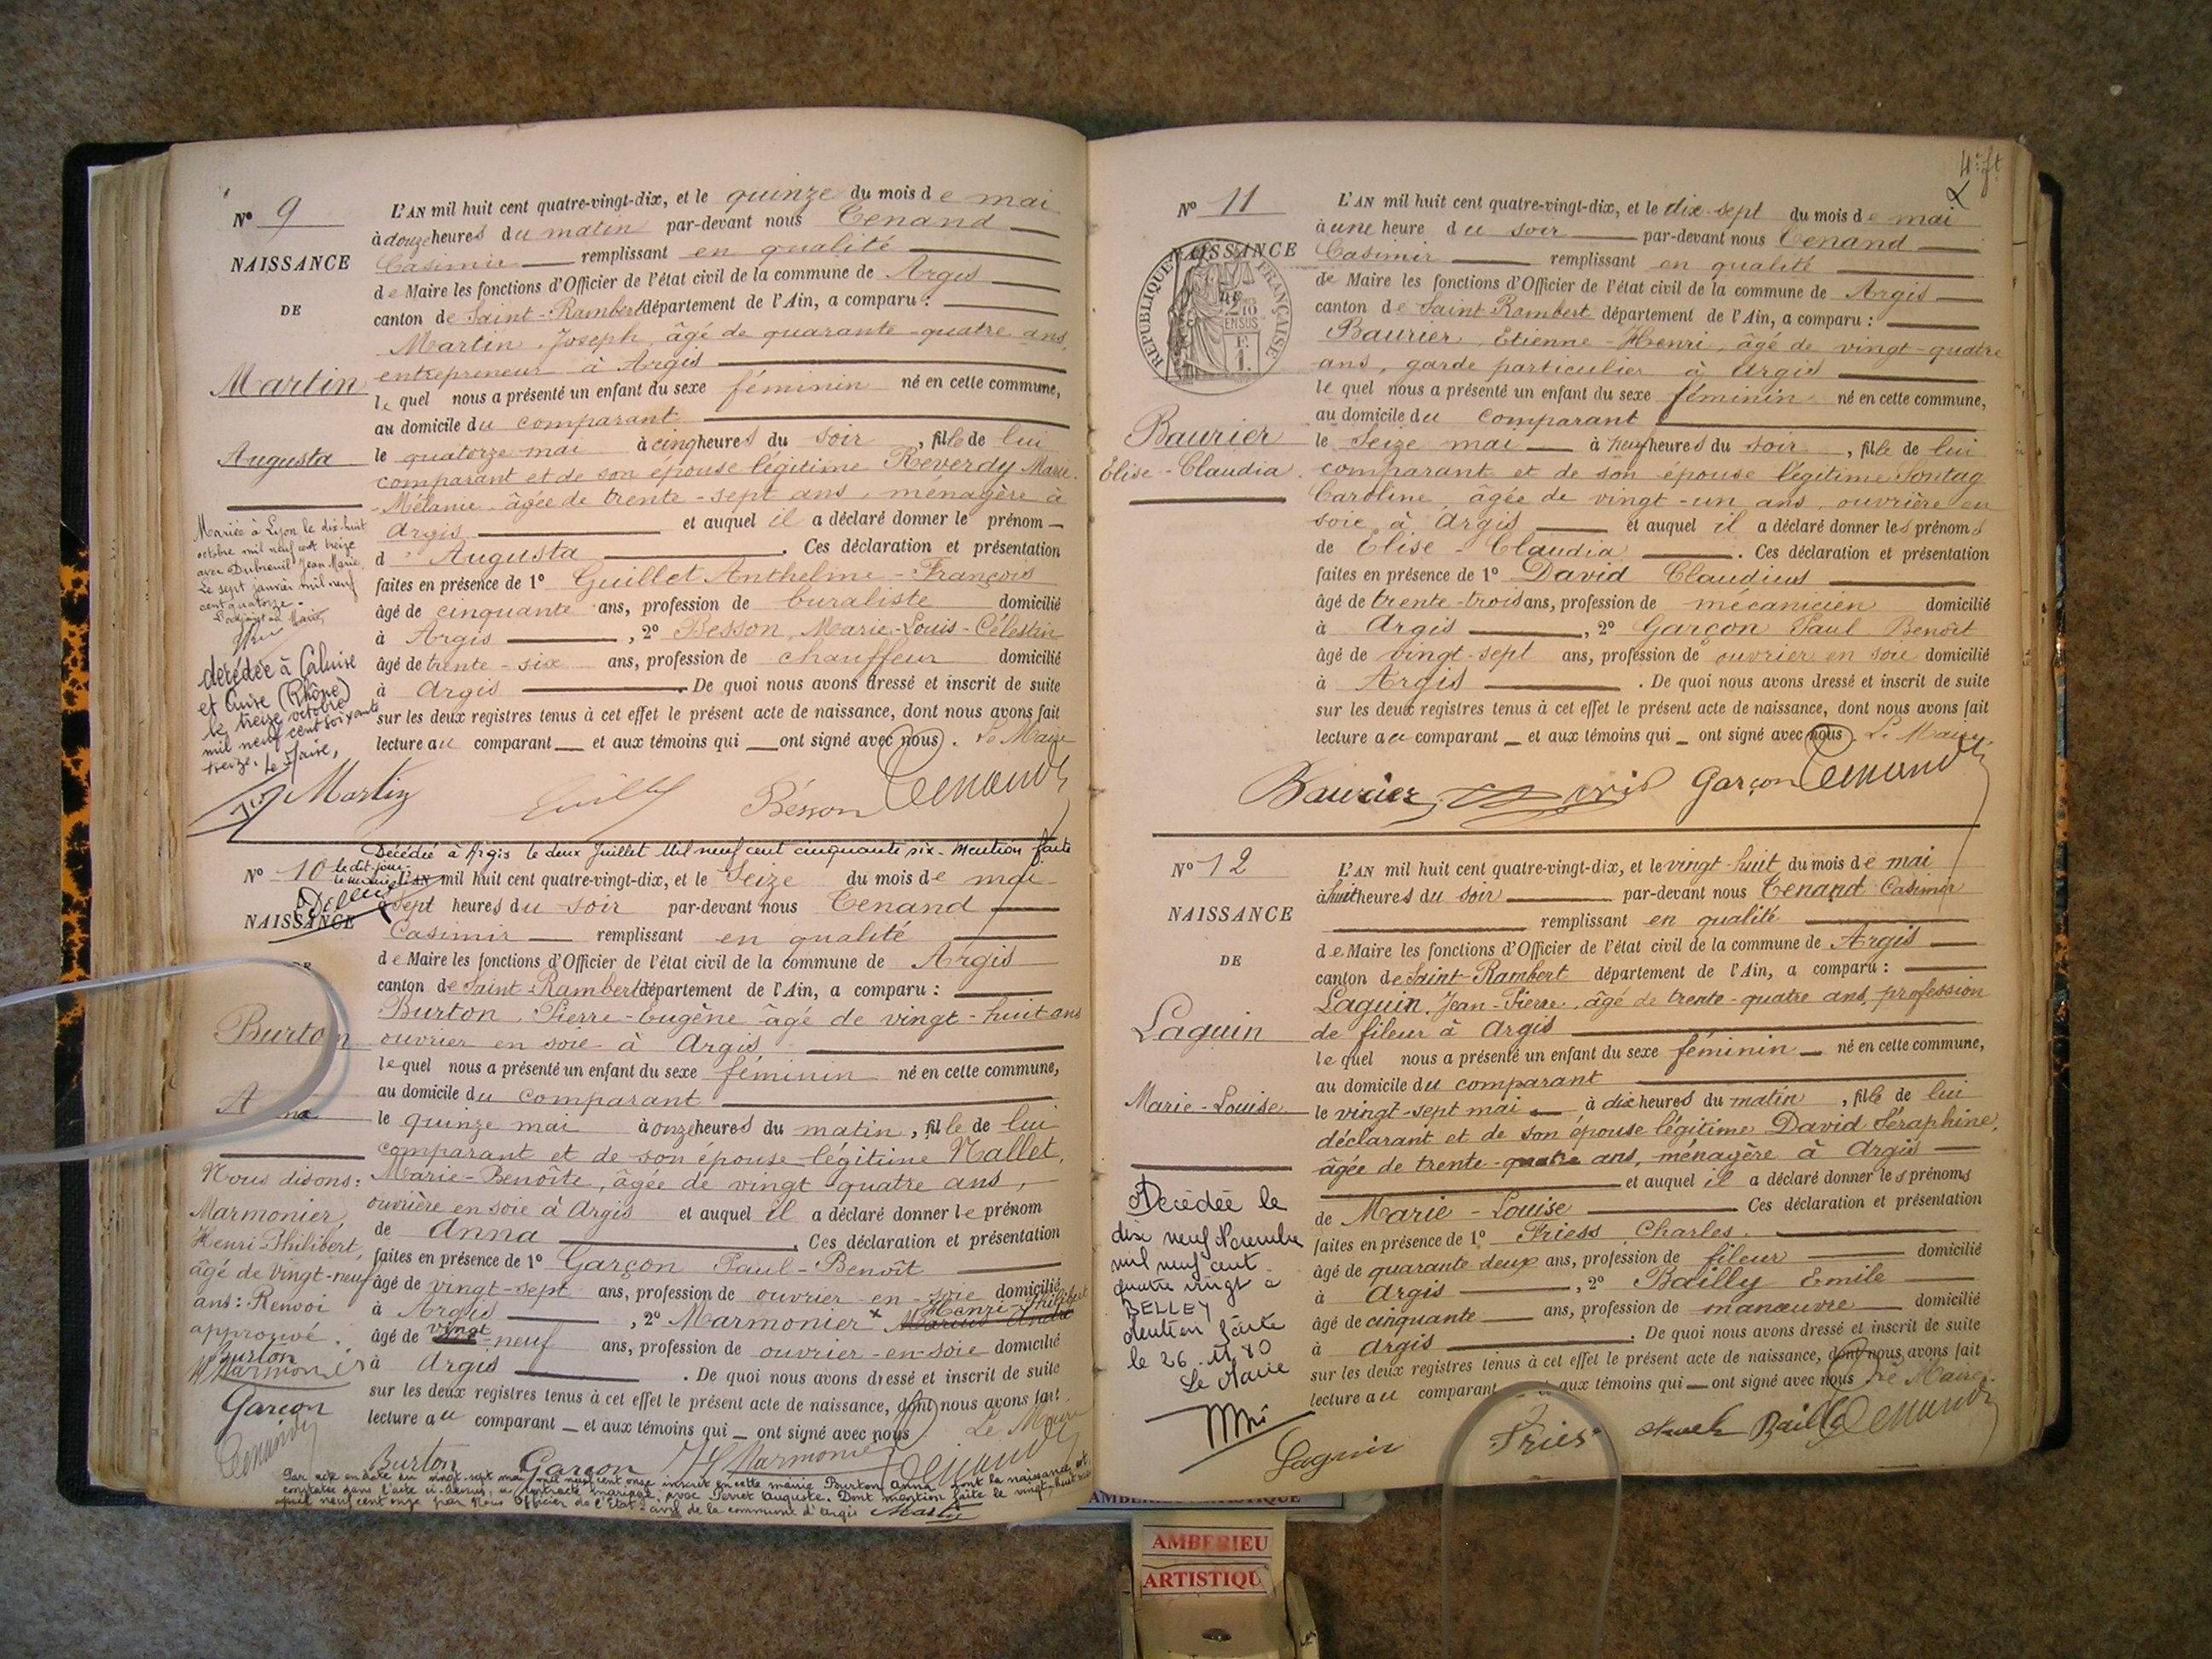 N° 9
NAISSANCE
DE
Martin
Augusta
Mariée à Lyon le dix-huit
octobre mil neuf cent treize
avec Dubreuil Jean Marie.
Le sept janvier mil neuf
cent quatorze.
décédée à Caluire
et Cuire (Rhône)
le treize octobre
mil neuf cent soixante
treize. Le Maire,
L'AN mil huit cent quatre-vingt-dix, et le quinze du mois de mai
à douze heures du matin par-devant nous Tenand
Casimir remplissant en qualité
de Maire les fonctions d'Officier de l'état civil de la commune de Argis
canton de Saint-Rambert département de l'Ain, a comparu :
Martin, Joseph, âgé de quarante-quatre ans,
entrepreneur à Argis
lequel nous a présenté un enfant du sexe féminin né en cette commune,
au domicile du comparant
le quatorze mai à cinq heures du soir, fille de lui
comparant et de son épouse légitime Reverdy Marie
-Mélanie âgée de trente-sept ans, ménagère à
Argis et auquel il a déclaré donner le prénom
d'Augusta. Ces déclaration et présentation
faites en présence de 1° Guillet Anthelme-François
âgé de cinquante ans, profession de buraliste domicilié
à Argis, 2° Besson, Marie-Louis-Célestin
âgé de trente-six ans, profession de chauffeur domicilié
à Argis. De quoi nous avons dressé et inscrit de suite
sur les deux registres tenus à cet effet le présent acte de naissance, dont nous avons fait
lecture au comparant et aux témoins qui ont signé avec nous. Le Maire
Martin Guillet Besson Tenand
Décédée à Argis le deux Juillet Mil neuf cent cinquante six. Mention faite
le dit jour.
N° 10
NAISSANCE
DE
Burton
A na
Nous disons :
Marmonier,
Henri-Philibert,
âgé de vingt-neuf
ans : Renvoi
approuvé.
Burton
Marmonier
Garçon
Tenand
L'AN mil huit cent quatre-vingt-dix, et le Seize du mois de mai
à Sept heures du soir par-devant nous Tenand
Casimir remplissant en qualité
de Maire les fonctions d'Officier de l'état civil de la commune de Argis
canton de Saint-Rambert département de l'Ain, a comparu :
Burton, Pierre-Eugène âgé de vingt-huit ans
ouvrier en soie à Argis
lequel nous a présenté un enfant du sexe féminin né en cette commune,
au domicile du comparant
le quinze mai à onze heures du matin, fille de lui
comparant et de son épouse légitime Nallet,
Marie-Benoîte, âgée de vingt quatre ans,
ouvrière en soie à Argis et auquel il a déclaré donner le prénom
de Anna. Ces déclaration et présentation
faites en présence de 1° Garçon Paul-Benoît
âgé de vingt-sept ans, profession de ouvrier-en-soie domicilié
Henri-Philibert
à Argis, 2° Marmonier x
âgé de vingt neuf ans, profession de ouvrier-en-soie domicilié
à Argis. De quoi nous avons dressé et inscrit de suite
sur les deux registres tenus à cet effet le présent acte de naissance, dont nous avons fait
lecture au comparant et aux témoins qui ont signé avec nous. Le Maire
Burton Garçon Marmonier Tenand
Par acte en date du vingt-sept mai mil neuf cent onze inscrit en cette mairie Burton Anna dont la naissance est
constatée dans l'acte ci-dessus, a contracté mariage avec Perret Auguste. Dont mention faite le vingt-huit mai
mil neuf cent onze par Nous Officier de l'Etat-civil de la commune d'Argis Martin
4e ft
N° 11
NAISSANCE
RÉPUBLIQUE FRANÇAISE
2/10 EN SUS
F. 1.
Baurier
Elise-Claudia.
L'AN mil huit cent quatre-vingt-dix, et le dix-sept du mois de mai
à une heure du soir par-devant nous Tenand
Casimir remplissant en qualité
de Maire les fonctions d'Officier de l'état civil de la commune de Argis
canton de Saint Rambert département de l'Ain, a comparu :
Baurier, Etienne-Henri, âgé de vingt-quatre
ans, garde particulier à Argis
lequel nous a présenté un enfant du sexe féminin né en cette commune,
au domicile du comparant
le Seize mai à neuf heures du soir, fille de lui
comparant et de son épouse légitime Sontag
Caroline âgée de vingt-un ans, ouvrière en
soie, à Argis et auquel il a déclaré donner les prénoms
de Elise-Claudia. Ces déclaration et présentation
faites en présence de 1° David Claudius
âgé de trente-trois ans, profession de mécanicien domicilié
à Argis, 2° Garçon Paul Benoît
âgé de vingt-sept ans, profession de ouvrier en soie domicilié
à Argis. De quoi nous avons dressé et inscrit de suite
sur les deux registres tenus à cet effet le présent acte de naissance, dont nous avons fait
lecture au comparant et aux témoins qui ont signé avec nous. Le Maire,
Baurier David Garçon Tenand
N° 12
NAISSANCE
DE
Laguin
Marie-Louise
Décédée le
dix neuf Novembre
mil neuf cent
quatre vingt à
BELLEY
Mention faite
le 26.11.80
Le Maire
L'AN mil huit cent quatre-vingt-dix, et le vingt-huit du mois de mai
à huit heures du soir par-devant nous Tenand Casimir
remplissant en qualité
de Maire les fonctions d'Officier de l'état civil de la commune de Argis
canton de Saint-Rambert département de l'Ain, a comparu :
Laguin, Jean-Pierre, âgé de trente-quatre ans, profession
de fileur à Argis
lequel nous a présenté un enfant du sexe féminin né en cette commune,
au domicile du comparant
le vingt-sept mai à dix heures du matin, fille de lui
déclarant et de son épouse légitime David Séraphine,
âgée de trente-quatre ans, ménagère à Argis
et auquel il a déclaré donner les prénoms
de Marie-Louise Ces déclaration et présentation
faites en présence de 1° Friess Charles.
âgé de quarante deux ans, profession de fileur domicilié
à Argis, 2° Bailly Emile
âgé de cinquante ans, profession de manœuvre domicilié
à Argis. De quoi nous avons dressé et inscrit de suite
sur les deux registres tenus à cet effet le présent acte de naissance, dont nous avons fait
lecture au comparant et aux témoins qui ont signé avec nous Le Maire.
Laguin Fries Bailly Tenand
AMBERIEU
ARTISTIQU